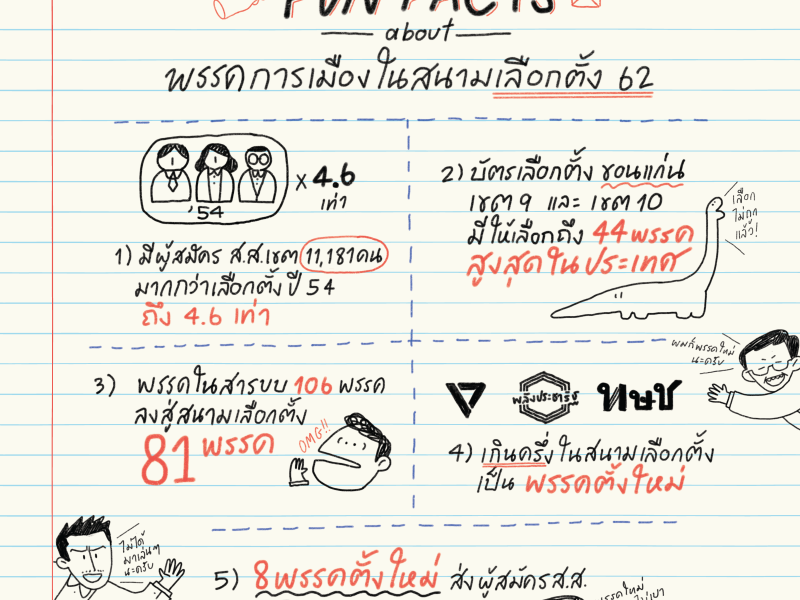 FUN FACTS
about
พรรคการเมืองในสนามเลือกตั้ง 62
x 4.6
เท่า
'54
1) มีผู้สมัคร ส.ส.เขต 11,181คน
มากกว่าเลือกตั้งปี 54
ถึง 4.6 เท่า
2) บัตรเลือกตั้ง ขอนแก่น
เขต 9 และ เขต 10
มีให้เลือกถึง 44 พรรค
สูงสุดในประเทศ
เลือก
ไม่ถูก
แล้ว!
3) พรรคในสารบบ 106 พรรค
ลงสู่สนามเลือกตั้ง
81 พรรค
OMG!!
ผมก็พรรคใหม่
นะครับ
พลังประชารัฐ
ทษช
4) เกินครึ่งในสนามเลือกตั้ง
เป็น พรรคตั้งใหม่
ไม่ได้
มาเล่นๆ
นะครับ
5) 8พรรคตั้งใหม่ ส่งผู้สมัครส.ส.